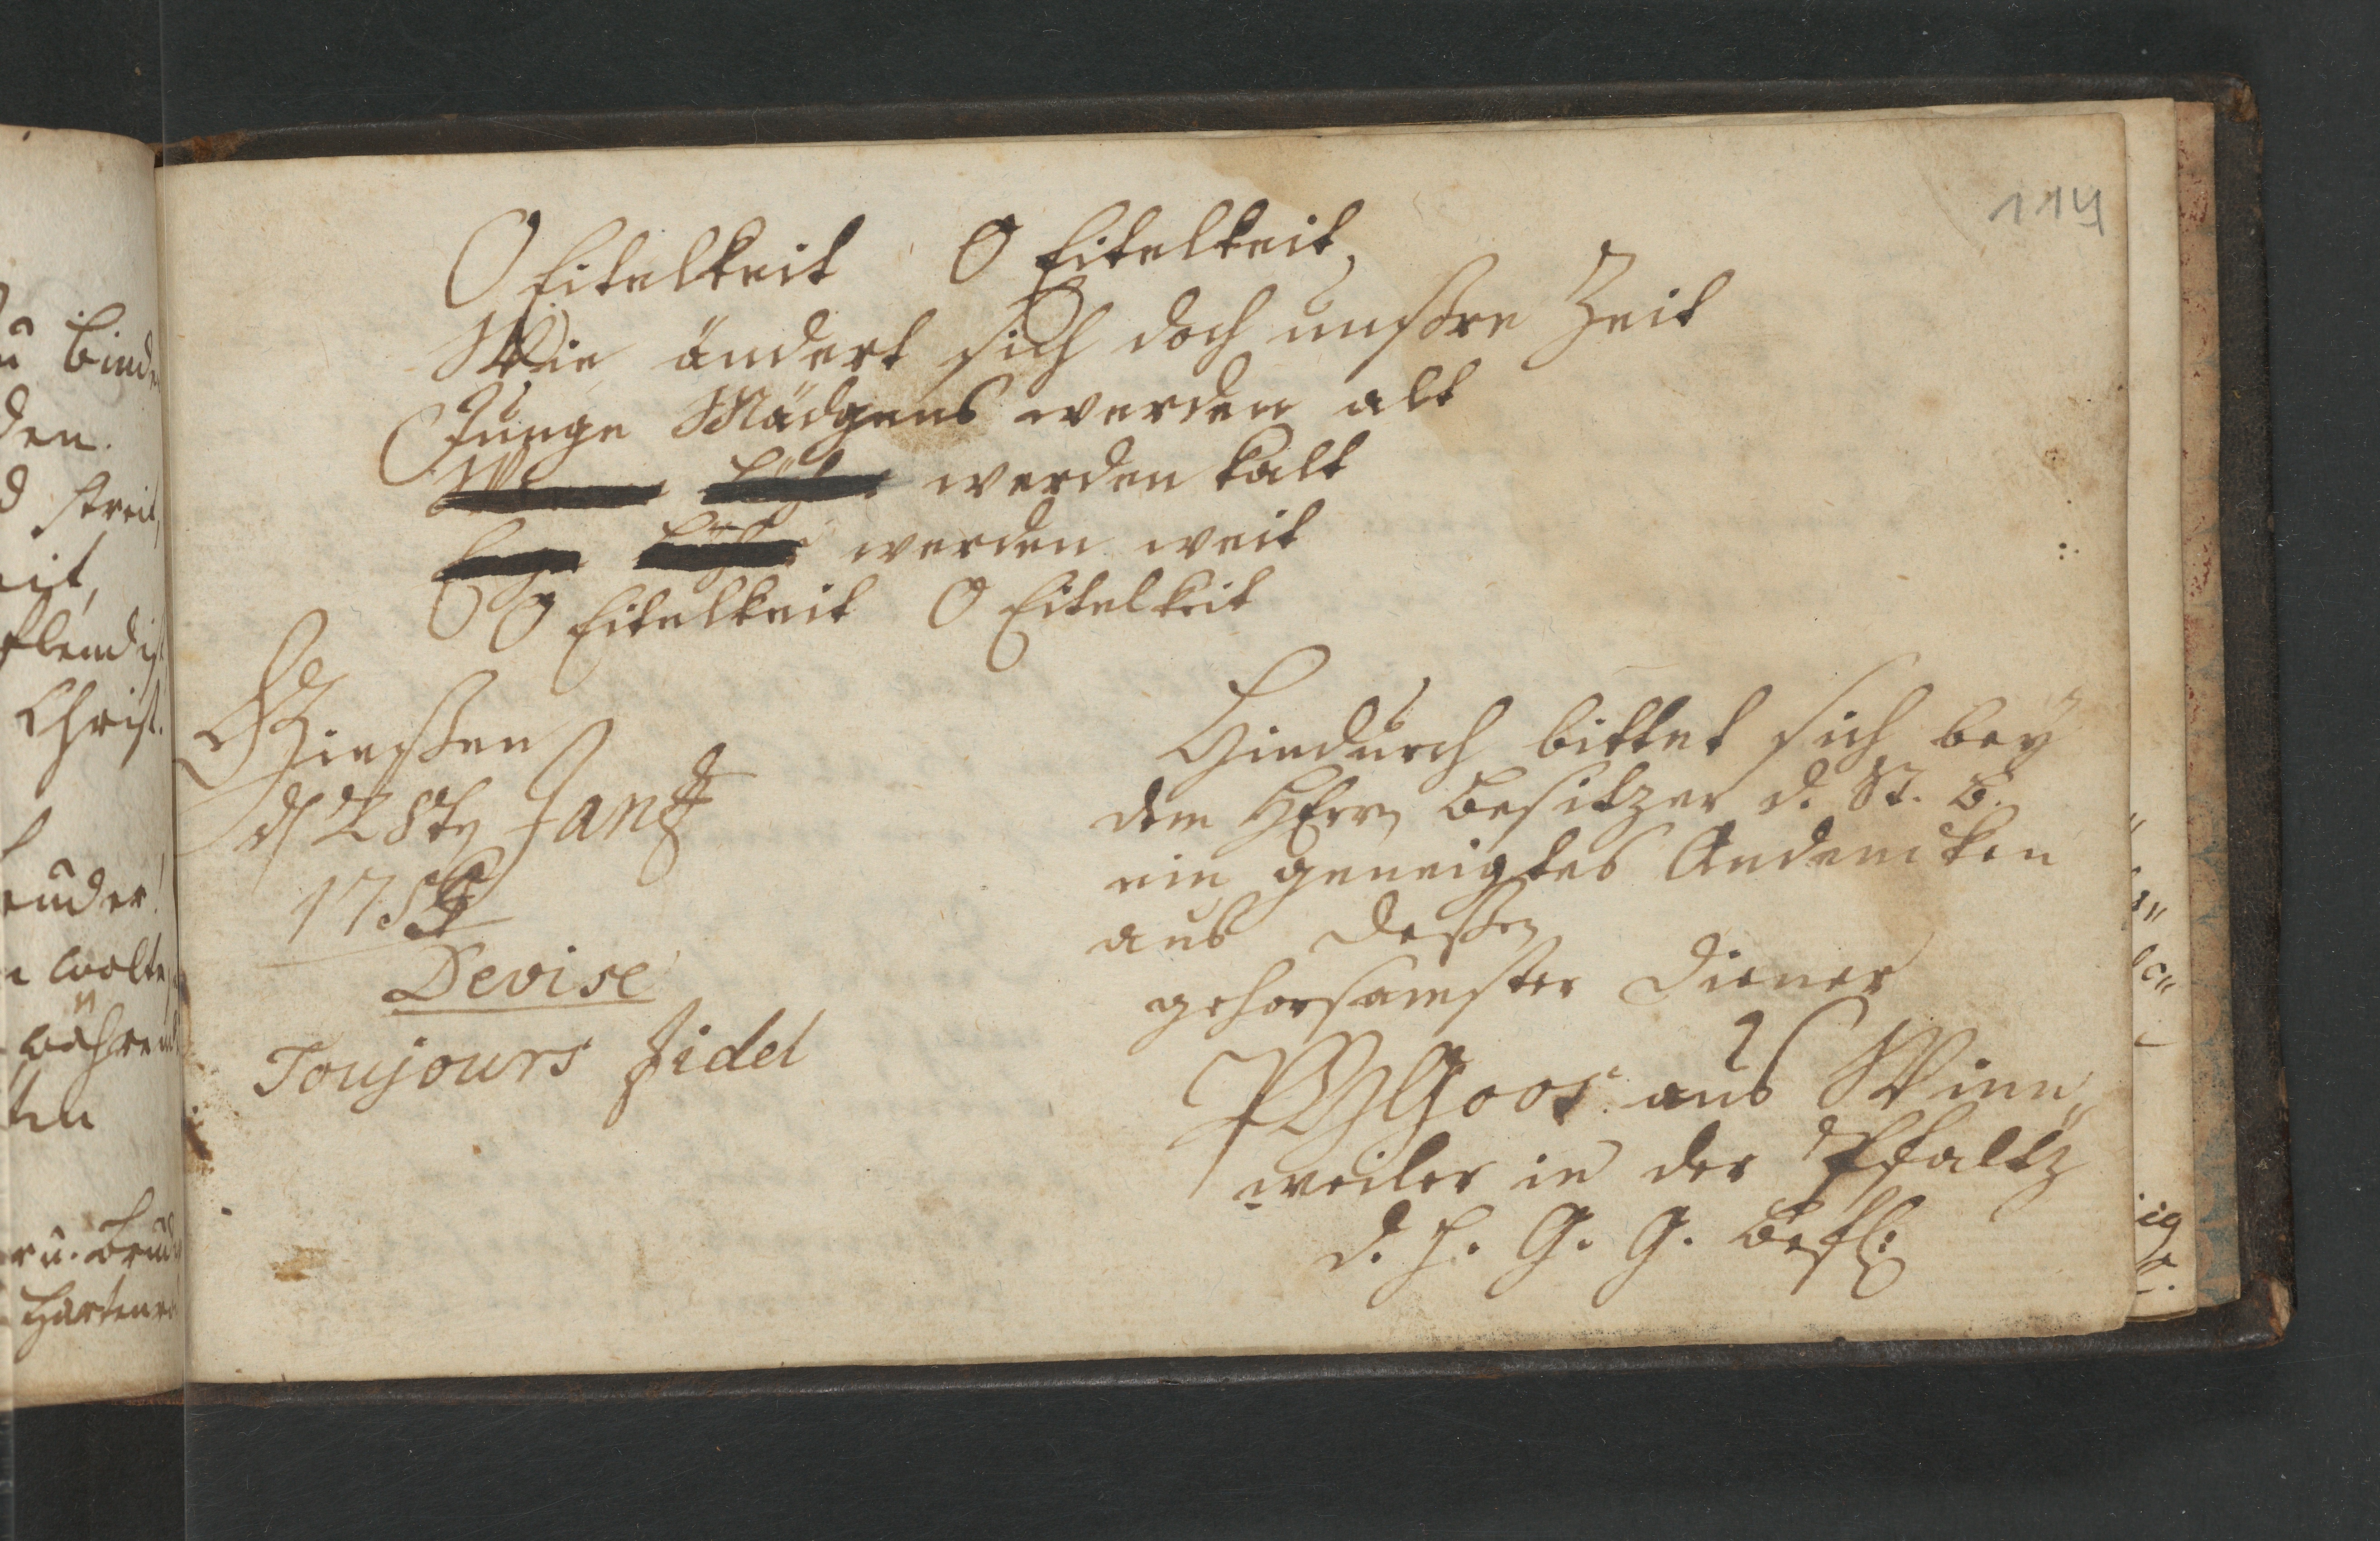 114
O Eitelkeit O Eitelkeit,
Wie ändert sich doch unßre Zeit
Junge Mädgens werden alt
werden kalt
Enge werden weit
O Eitelkeit O Eitelkeit
Gießen
d 28tn Jan
Devise
Toujours fidel
Hiedurch bittet sich bey
dem HErrn Besitzer d. St. B.
ein geneigtes Andencken
aus deßen
gehorsamster Diener
Goos. aus Winn„
weiler in der Pfaltz
d. h. G. G. Befl:
u Binde
den.
d streit,
eit,
Elend ist
Christ.
wolte,
währe
ten
r u. Brud